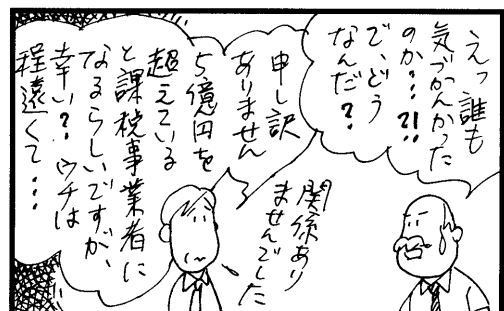 えっ誰も
気づかんかった
のか…?!
で、どう
なんだ?
申し訳
ありません
5億円を
超えている
と課税事業者に
なるらしいですが、
幸い?ウチは
程遠くて…
関係あり
ませんでした